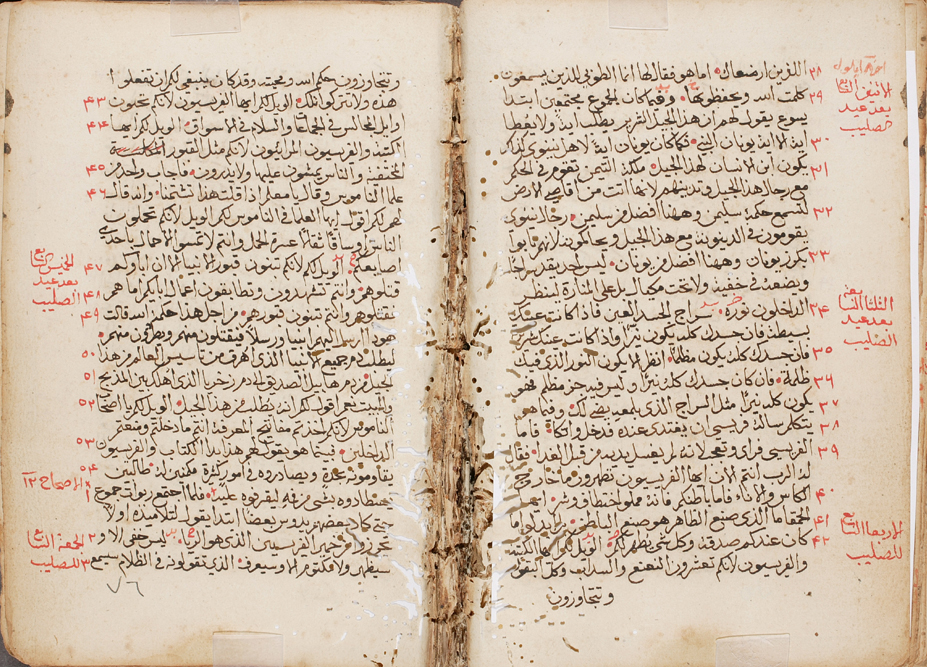 اللذين ارضعاك اما هو فقال لها انما الطوبى للذين يسمعون
كلمت الله ويحفظوها وفيما كان الجموع مجتمعين ابتدا
يسوع يقول لهم ان هذا الجيل الشرير يطلب اية ولا يعطا
اية الا اية يونان النبي فكما كان يونان اية لاهل نينوى كذلك
يكون ابن الانسان لهذا الجيل ملكة التيمن تقوم في الحكم
مع رجال هذا الجيل وتدينهم لانها اتت من اقاصي الارض
لتسمع حكمة سليمن وههنا افضل من سليمن رجال نينوى
يقومون في الدينونة مع هذا الجيل ويحاكمونه لانهم تابوا
بكرز يونان وههنا افضل من يونان ليس احد يقد سراجا
ويضعه في خفية ولا تحت مكيال بل على المنارة لينظر
الداخلون نوره سراج الجسد العين فاذا كانت عينك
بسيطة فان جسدك كله يكون نيرا واذا كانت عينك شريرة
فان جسدك كله يكون مظلما انظر الا يكون النور الذي فيك
ظلمة فان كان جسدك كله نيرا وليس فيه جز مظلم فهو
يكون كله نيرا مثل السراج الذي بلمعه يضي لك وفيما هو
يتكلم ساله فريسي ان يتغدى عنده فدخل واتكا فاما
الفريسي فراى وتعجب لانه لم يغسل يديه من قبل الغدا فقال
له الرب انتم الان ايها الفريسيون تطهرون ما خارج
الكاس والاناء فاما باطنكم فانه مملو اختطافا وشر ايها
الجهقا ما الذي صنع الظاهر هو صنع الباطن بل ابدلوا ما
كان عندكم صدقة وكل شي يطهر لكم الويل لكم ايها الكتبة
والفريسيون لانكم تعشرون النعنع والسداب وكل البقول
وتتجاوزون
٢٨
٢٩
٣٠
٣١
٣٢
٣٣
٣٤
٣٥
٣٦
٣٧
٣٨
٣٩
٤٠
٤١
٤٢
الاثنين التاسع
بعد عيد
الصليب
الثلثا التاسع
بعد عيد
الصليب
الاربعا التاسع
للصليب
وتتجاوزون حكم الله ومحبته وقد كان ينبغي لكم ان تفعلوا
هذه ولا تتركوا تلك الويل لكم ايها الفريسيون لانكم تحبون
اوايل المجالس في الجماعات والسلام في الاسواق الويل لكم ايها
الكتبة والفريسيون المراييون لانكم مثل القبور
المخفية والناس يمشون عليها ولا يدرون فاجاب واحد من
علما الناموس وقال يا معلم اذا قلت هذا تشتمنا واند قال
لهم لكم اقول ايها العلما في الناموس لكم الويل لانكم تحملون
الناس اوساقا ثقالا عسرة الحمل وانتم لا تمسوا الاحمال باحدى
اصابعكم الويل لكم لانكم تبنون قبور الانبيا الان اباوكم
قتلوهم وانتم تشهدون وتطابقون اعمال ابايكم اما هم
فقتلوهم وانتم تبنون قبورهم من اجل هذا حكمة الله قالت
هوذا ارسل اليهم انبيا ورسلا فيقتلون منهم ويطردون منهم
ليطلب دم جميع الانبيا الذي اهرق من تاسيس العالم من هذا
الجيل من دم هابيل الصديق الى دم زخريا الذي اهلك بين المذبح
والبيت نعم اقول لكم انه يطلب من هذا الجيل الويل لكم يا اصحاب
الناموس لانكم اخذتم مفاتيح المعرفة انتم ما دخلتم ومنعتم
الداخلين فبينما هو يقول لهم هذا بدا الكتاب والفريسيون
يقاومونه بحدة ويصادروه في امور كثيرة مكمنين له طالبين
يصطادوه بشي من فمه ليقرفوه عليه فلما اجتمع ربوات جموع
حتى كاد بعضهم يدوس بعضا ابتدا يقول لتلاميذه اولا
تحرزوا من خمير الفريسيين الذي هو الرياء ليس خفي الا و
سيظهر ولا مكتوم الا وسيعرف الذي تقولونه في الظلام سيسمع
٤٣
٤٤
٤٥
٤٦
٤٧
٤٨
٤٩
٥٠
٥١
٥٢
٥٣
٥٤
الاصحاح ١٢
١
٢
٣
الخميس التاسع
بعد عيد
الصليب
الجمعة التاسع
للصليب
٧٦